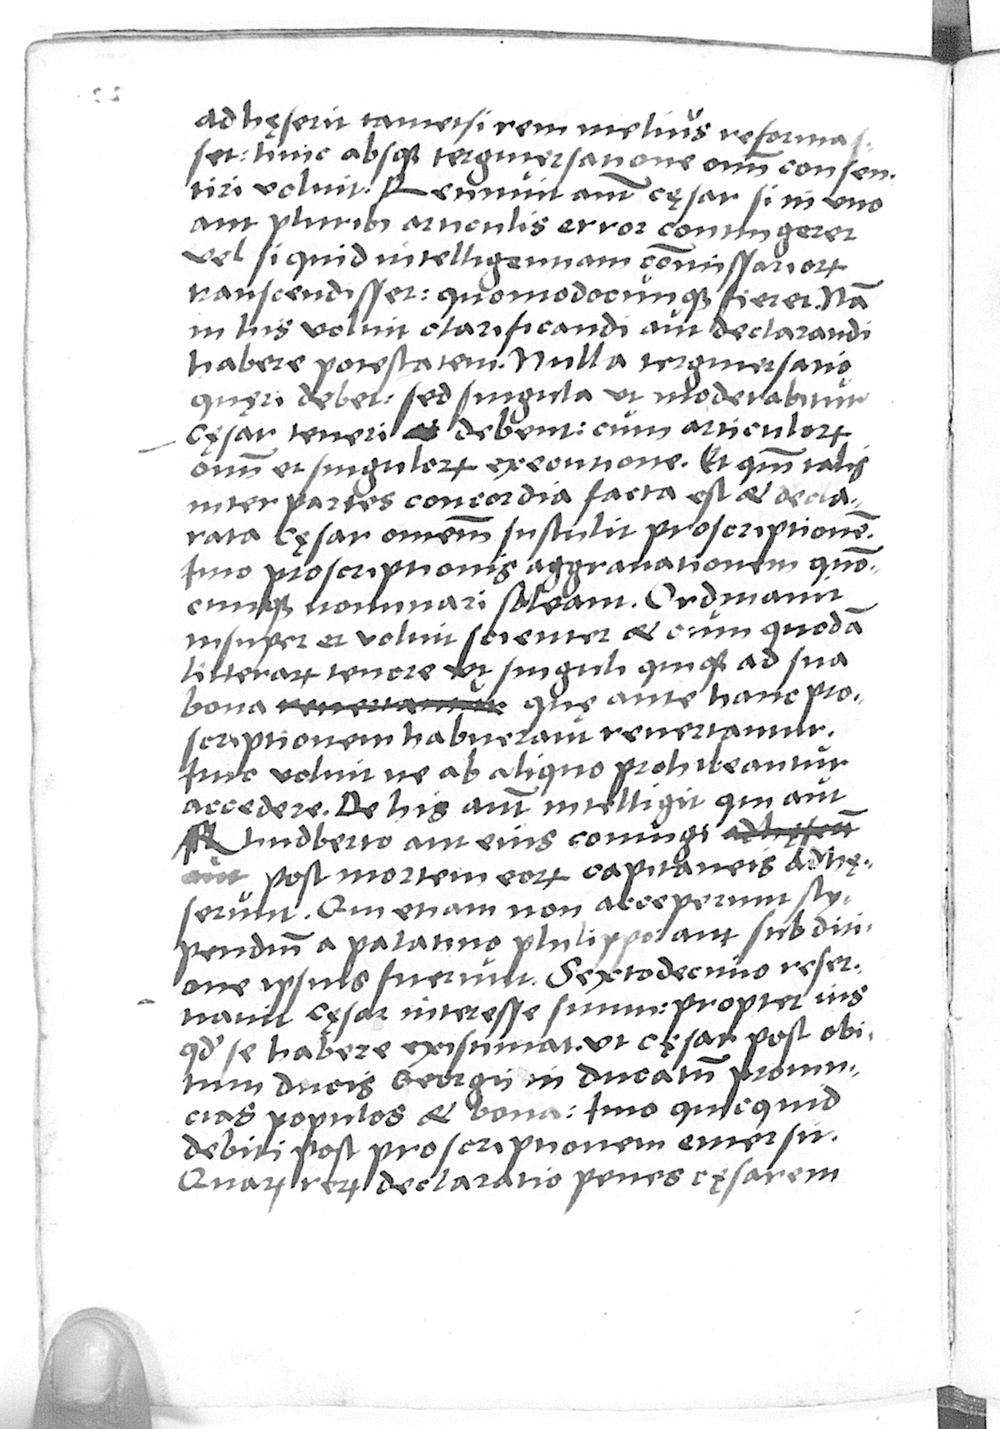 adhęserit tametsi rem melius reformas-
set: hinc absq̃ tergiuersatione om̃ consen-
tiri voluit. Rennuit aut̃ cęsar si in vno
aut plurib articulis error contingeret
vel si quid intelligentiam com̃issarioꝝ
transcendisset: quomodocunq̃ fieret. Nã
in his voluit clarificandi aut declarandi
habere potestatem. Nulla tergiuersatio
quęri debet: sed singula ut moderabitur
Cęsar teneri debent: cum articuloꝝ
om̃ et singuloꝝ executione. Et qm̃ talis
inter partes concordia facta est & decla-
rata Cęsar omem̃ sustulit proscriptionẽ.
Imo proscriptionis aggrauationem quõ-
cunq̃ nominari soleant. Ordinauit
insuper et voluit scienter & cum quodã
litteraꝝ tenore vt singuli quiq̃ ad sua
bona reuertantur quę ante hanc pro-
scriptionem habuerant reuertantur.
Hinc voluit ne ab aliquo prohibeantur
accedere. De his aut̃ intelligit qui aut
Rhudberto aut eius coniugi adhęserũt
aut post mortem eoꝝ capitaneis adhę-
serunt. Qui etiam non acceperunt sty-
pendiũ a palatino philippo aut subditi-
one ipsius fuerunt. Sextodecimo reser-
uauit cęsar interesse suum: propter ius
qd̃ se habere existimat. vt cęsar post obi-
tum ducis Georgii in ducatũ prouin-
cias populos & bona: Imo quicquid
debiti post proscriptionem emersit.
Quaꝝ reꝝ declaratio penes cęsarem